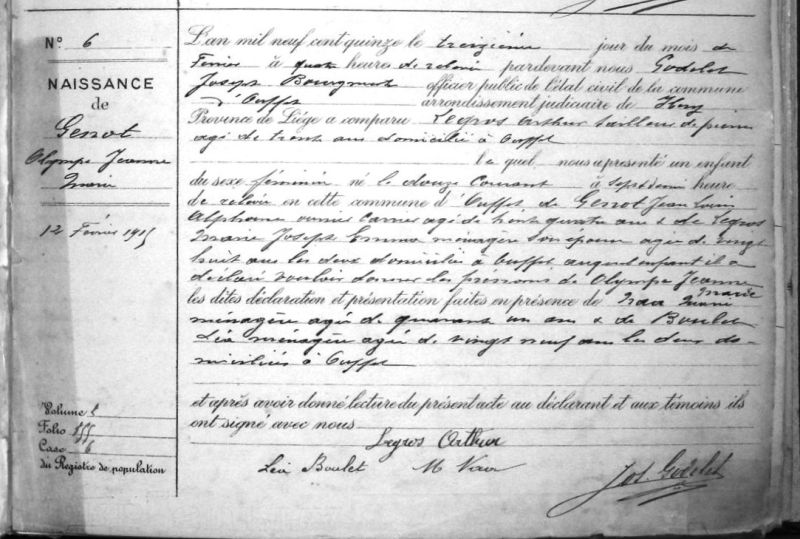 N° 6
NAISSANCE
de
Genot
Olympe Jeanne
Marie
12 Février 1915
Volume 2
Folio
Case 6
du Registre de population
L'an mil neuf cent quinze le treizième jour du mois de
Février à quatre heures de relevée pardevant nous Godelet
Joseph Bourgmestre officier public de l'état civil de la commune
d'Ouffet arrondissement judiciaire de Huy
Province de Liége a comparu Legros Arthur tailleur de pierres
agé de trente ans domicilié à Ouffet
lequel nous a présenté un enfant
du sexe féminin né le douze courant à sept et demie heures
de relevée en cette commune d'Ouffet de Genot Jean Louis
Alphonse ouvrier carrier agé de trente quatre ans & de Legros
Marie Joseph Emma ménagère son épouse agée de vingt
huit ans les deux domiciliés à Ouffet auquel enfant il a
déclaré vouloir donner les prénoms de Olympe Jeanne Marie
les dites déclaration et présentation faites en présence de Marie
ménagère agée de quarante un ans & de Boulet
Léa ménagère agée de vingt neuf ans les deux do-
miciliées à Ouffet
et après avoir donné lecture du présent acte au déclarant et aux témoins ils
ont signé avec nous
Legros Arthur
Léa Boulet M
Jos. Godelet